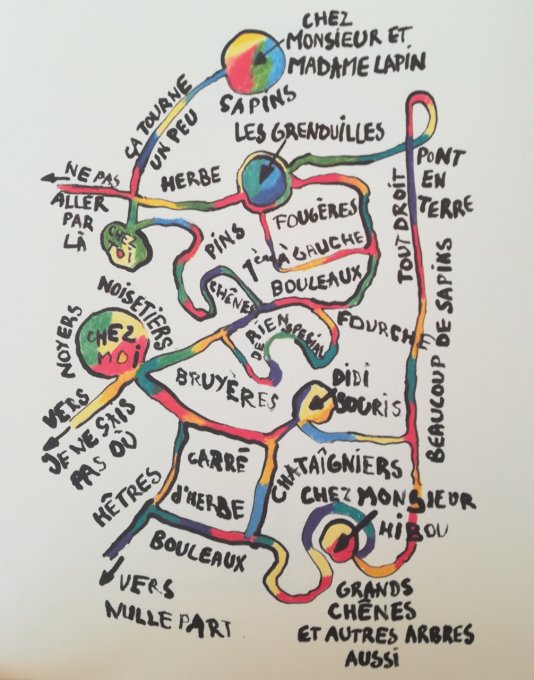 CHEZ
MONSIEUR ET
MADAME LAPIN
SAPINS
ÇA TOURNE
UN PEU
LES GRENOUILLES
NE PAS
ALLER
PAR
LÀ
HERBE
PONT
EN
TERRE
TOUT DROIT
BEAUCOUP DE SAPINS
FOUGÈRES
CHEZ
MOI
PINS
1ÈRE À GAUCHE
BOULEAUX
CHÊNES
NOISETIERS
NOYERS
CHEZ
MOI
RIEN
DE SPÉCIAL
FOURCHE
BRUYÈRES
DIDI
SOURIS
VERS
JE NE SAIS
PAS OÙ
CARRÉ
d'HERBE
CHATAÎGNIERS
HÊTRES
CHEZ MONSIEUR
HIBOU
BOULEAUX
VERS
NULLE PART
GRANDS
CHÊNES
ET AUTRES ARBRES
AUSSI